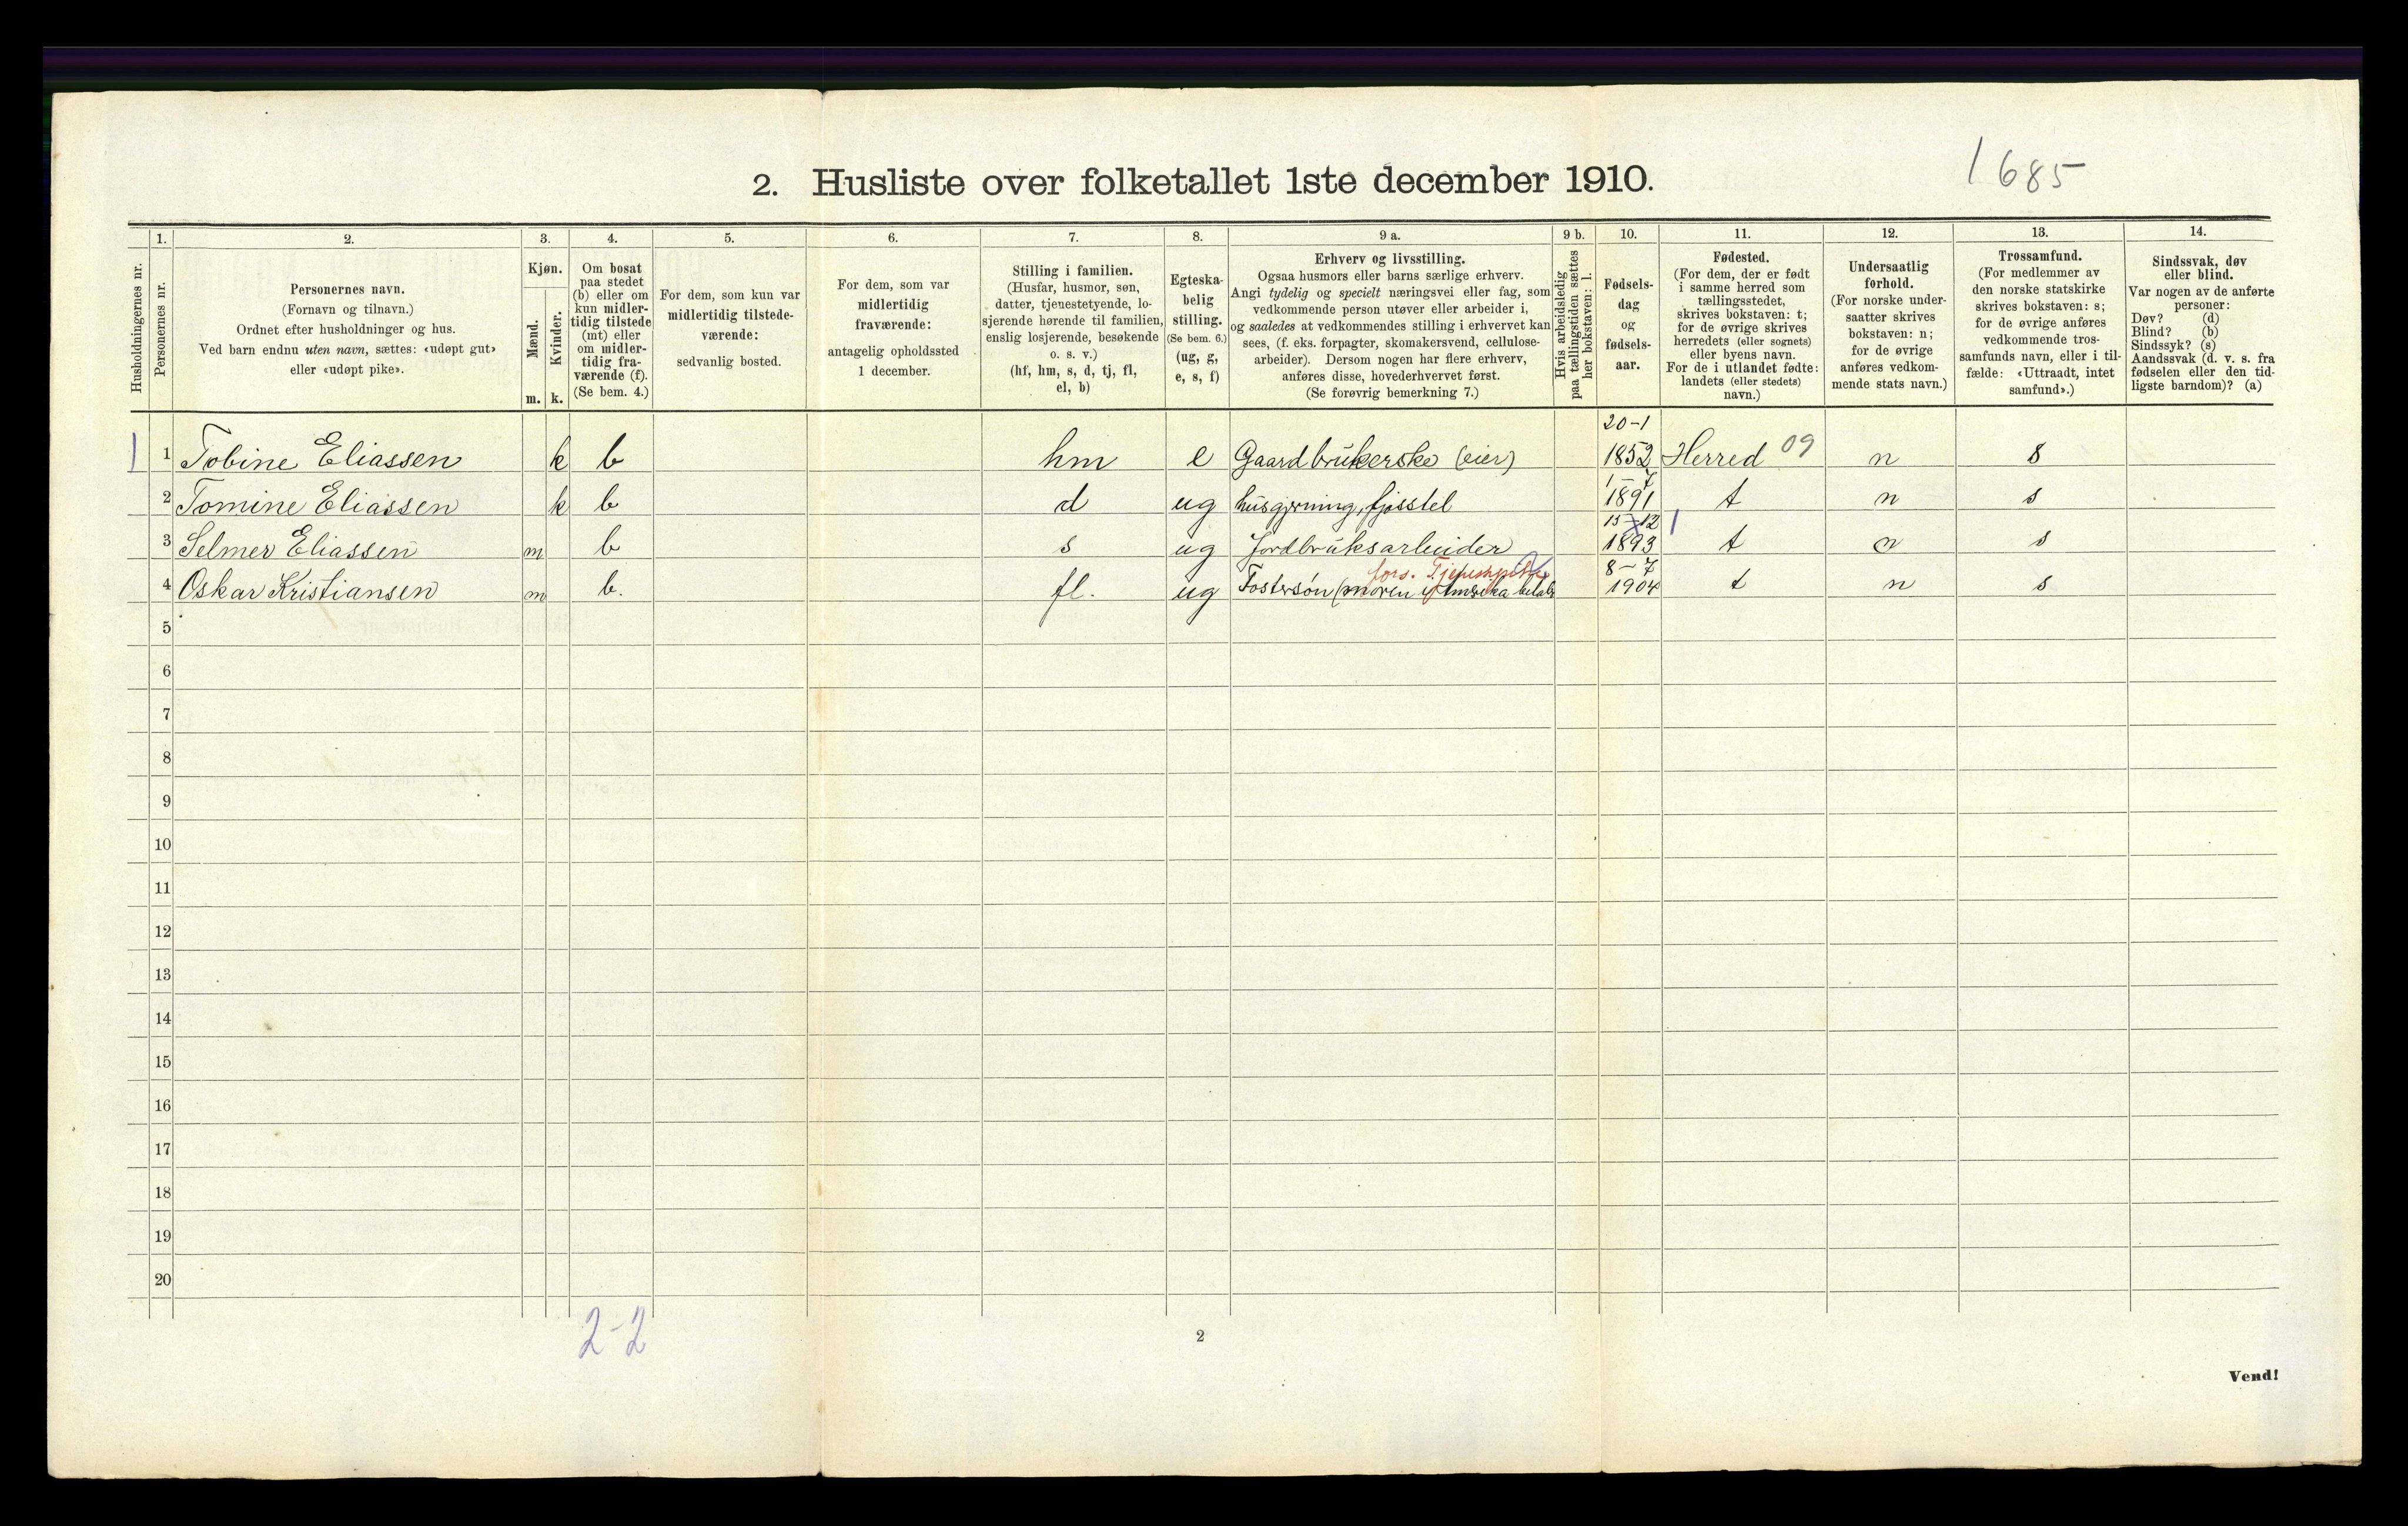 1685
2. Husliste over folketallet 1ste december 1910.
1. 2. 3. 4. 5. 6. 7. 8. 9 a. 9 b. 10. 11. 12. 13. 14.
Husholdningernes nr.
Personernes nr.
Personernes navn.
(Fornavn og tilnavn.)
Ordnet efter husholdninger og hus.
Ved barn endnu uten navn, sættes: «udøpt gut»
eller «udøpt pike».
Kjøn.
Mænd.
Kvinder.
m. k.
Om bosat
paa stedet
(b) eller om
kun midler-
tidig tilstede
(mt) eller
om midler-
tidig fra-
værende (f).
(Se bem. 4.)
For dem, som kun var
midlertidig tilstede-
værende:
sedvanlig bosted.
For dem, som var
midlertidig
fraværende:
antagelig opholdssted
1 december.
Stilling i familien.
(Husfar, husmor, søn,
datter, tjenestetyende, lo-
sjerende hørende til familien,
enslig losjerende, besøkende
o. s. v.)
(hf, hm, s, d, tj, fl,
el, b)
Egteska-
belig
stilling.
(Se bem. 6.)
(ug, g,
e, s, f)
Erhverv og livsstilling.
Ogsaa husmors eller barns særlige erhverv.
Angi tydelig og specielt næringsvei eller fag, som
vedkommende person utøver eller arbeider i,
og saaledes at vedkommendes stilling i erhvervet kan
sees, (f. eks. forpagter, skomakersvend, cellulose-
arbeider). Dersom nogen har flere erhverv,
anføres disse, hovederhvervet først.
(Se forøvrig bemerkning 7.)
Hvis arbeidsledig
paa tællingstiden sættes
her bokstaven: l.
Fødsels-
dag
og
fødsels-
aar.
Fødested.
(For dem, der er født
i samme herred som
tællingsstedet,
skrives bokstaven: t;
for de øvrige skrives
herredets (eller sognets)
eller byens navn.
For de i utlandet fødte:
landets (eller stedets)
navn.)
Undersaatlig
forhold.
(For norske under-
saatter skrives
bokstaven: n;
for de øvrige
anføres vedkom-
mende stats navn.)
Trossamfund.
(For medlemmer av
den norske statskirke
skrives bokstaven: s;
for de øvrige anføres
vedkommende tros-
samfunds navn, eller i til-
fælde: «Uttraadt, intet
samfund».)
Sindssvak, døv
eller blind.
Var nogen av de anførte
personer:
Døv? (d)
Blind? (b)
Sindssyk? (s)
Aandssvak (d. v. s. fra
fødselen eller den tid-
ligste barndom)? (a)
20-1
1 1 Tobine Eliassen k b hm e Gaardbrukerske (eier) 1852 Herred 09 n s
1-7
2 Tomine Eliassen k b d ug husgjrning, fjøsstel 1891 t n s
15-12 1
3 Selmer Eliassen m b s ug Jordbruksarbeider 1893 t n s
fors. 8-7
4 Oskar Kristiansen m b. fl. ug Fostersøn (moren i Amerika betaler 1904 t n s
5
6
7
8
9
10
11
12
13
14
15
16
17
18
19
20
2-2
2
Vend!